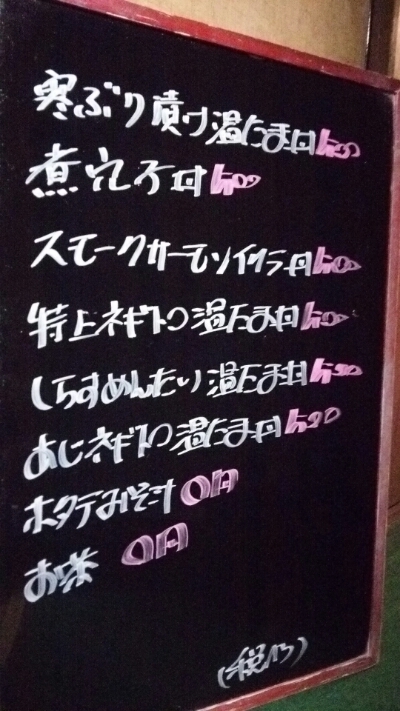 寒ぶり漬け温たま丼
煮穴子丼
スモークサーモンイクラ丼
特上ネギトロ温たま丼
しらすめんたい温たま丼
あじネギトロ温たま丼
ホタテみそ汁 0円
お茶 0円
(税込)